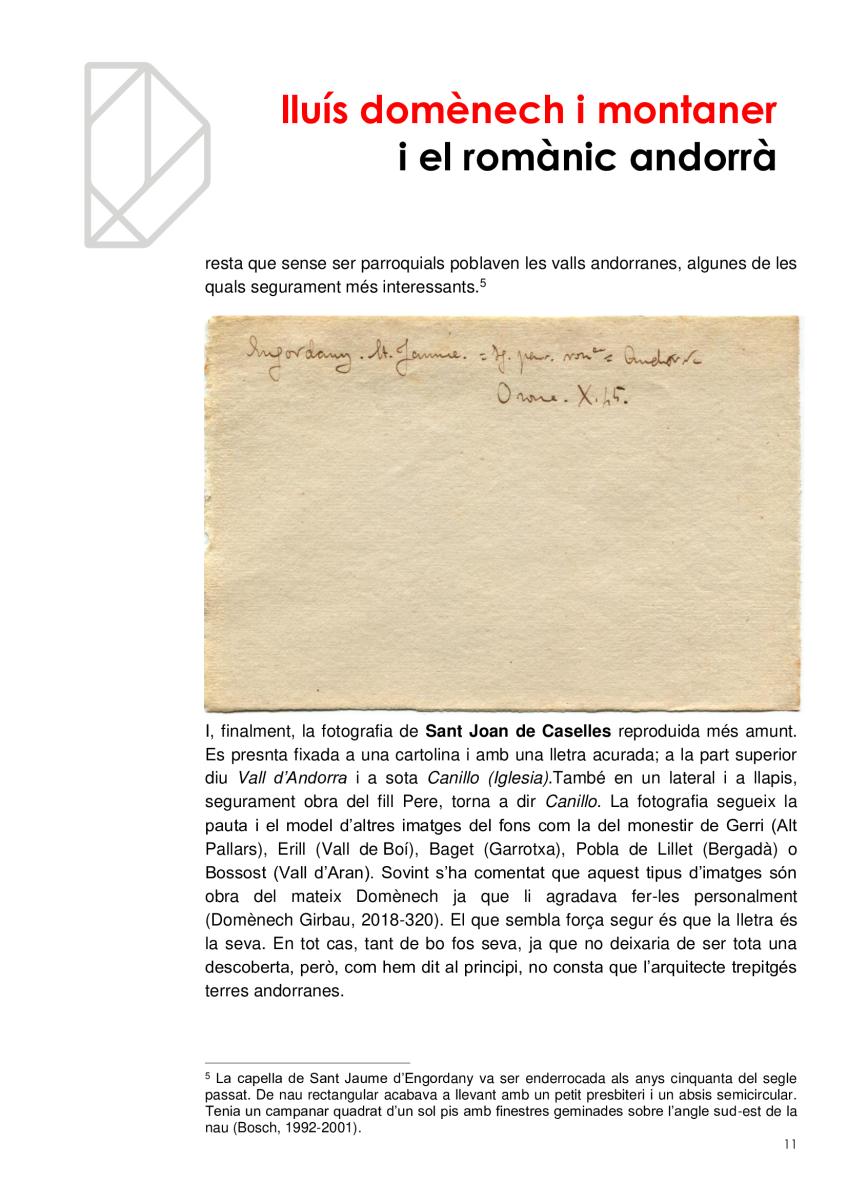 lluís domènech i montaner
i el romànic andorrà
resta que sense ser parroquials poblaven les valls andorranes, algunes de les
quals segurament més interessants.⁵
Engordany. St. Jaume. = Y. par. rom.ca = Andorra
X.45.
I, finalment, la fotografia de Sant Joan de Caselles reproduida més amunt.
Es presnta fixada a una cartolina i amb una lletra acurada; a la part superior
diu Vall d’Andorra i a sota Canillo (Iglesia).També en un lateral i a llapis,
segurament obra del fill Pere, torna a dir Canillo. La fotografia segueix la
pauta i el model d’altres imatges del fons com la del monestir de Gerri (Alt
Pallars), Erill (Vall de Boí), Baget (Garrotxa), Pobla de Lillet (Bergadà) o
Bossost (Vall d’Aran). Sovint s’ha comentat que aquest tipus d’imatges són
obra del mateix Domènech ja que li agradava fer-les personalment
(Domènech Girbau, 2018-320). El que sembla força segur és que la lletra és
la seva. En tot cas, tant de bo fos seva, ja que no deixaria de ser tota una
descoberta, però, com hem dit al principi, no consta que l’arquitecte trepitgés
terres andorranes.
⁵ La capella de Sant Jaume d’Engordany va ser enderrocada als anys cinquanta del segle
passat. De nau rectangular acabava a llevant amb un petit presbiteri i un absis semicircular.
Tenia un campanar quadrat d’un sol pis amb finestres geminades sobre l’angle sud-est de la
nau (Bosch, 1992-2001).
11